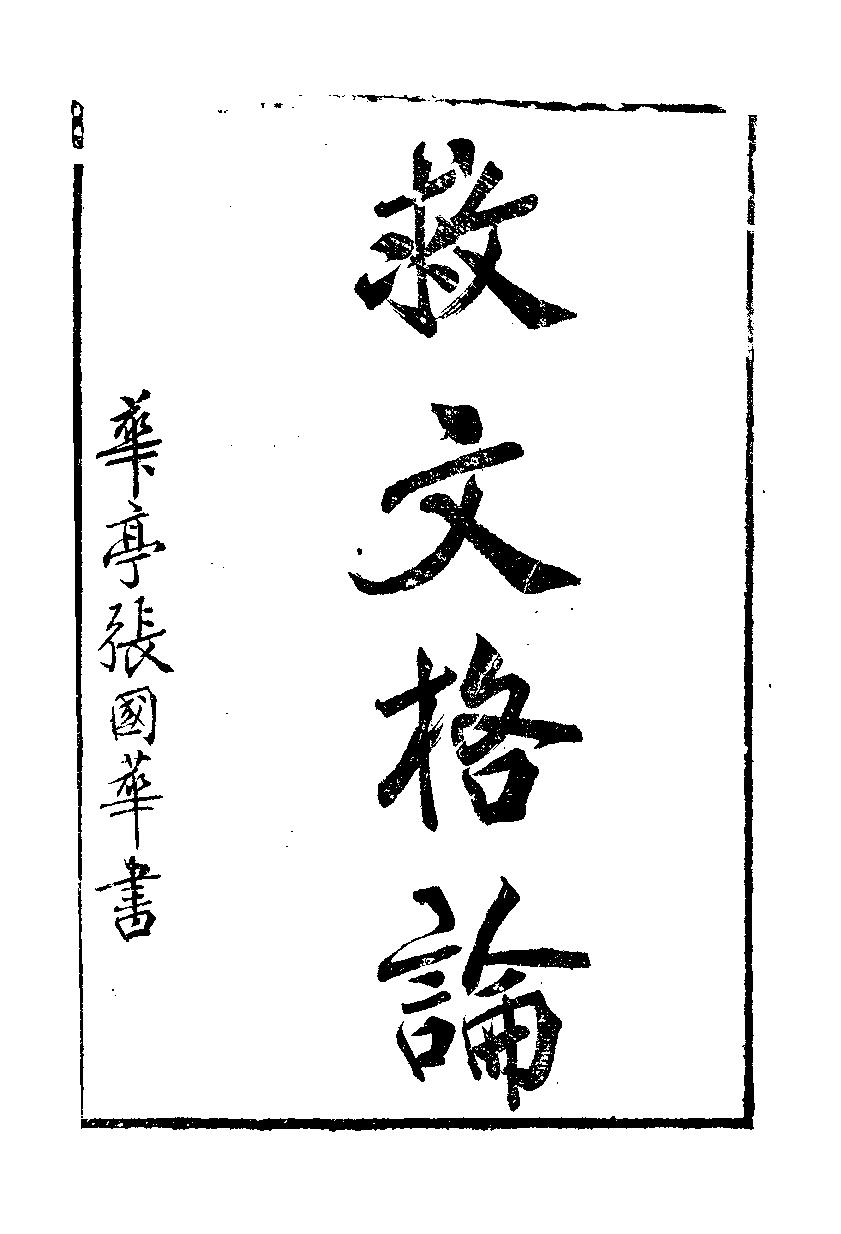 救文格論
華亭張國華書